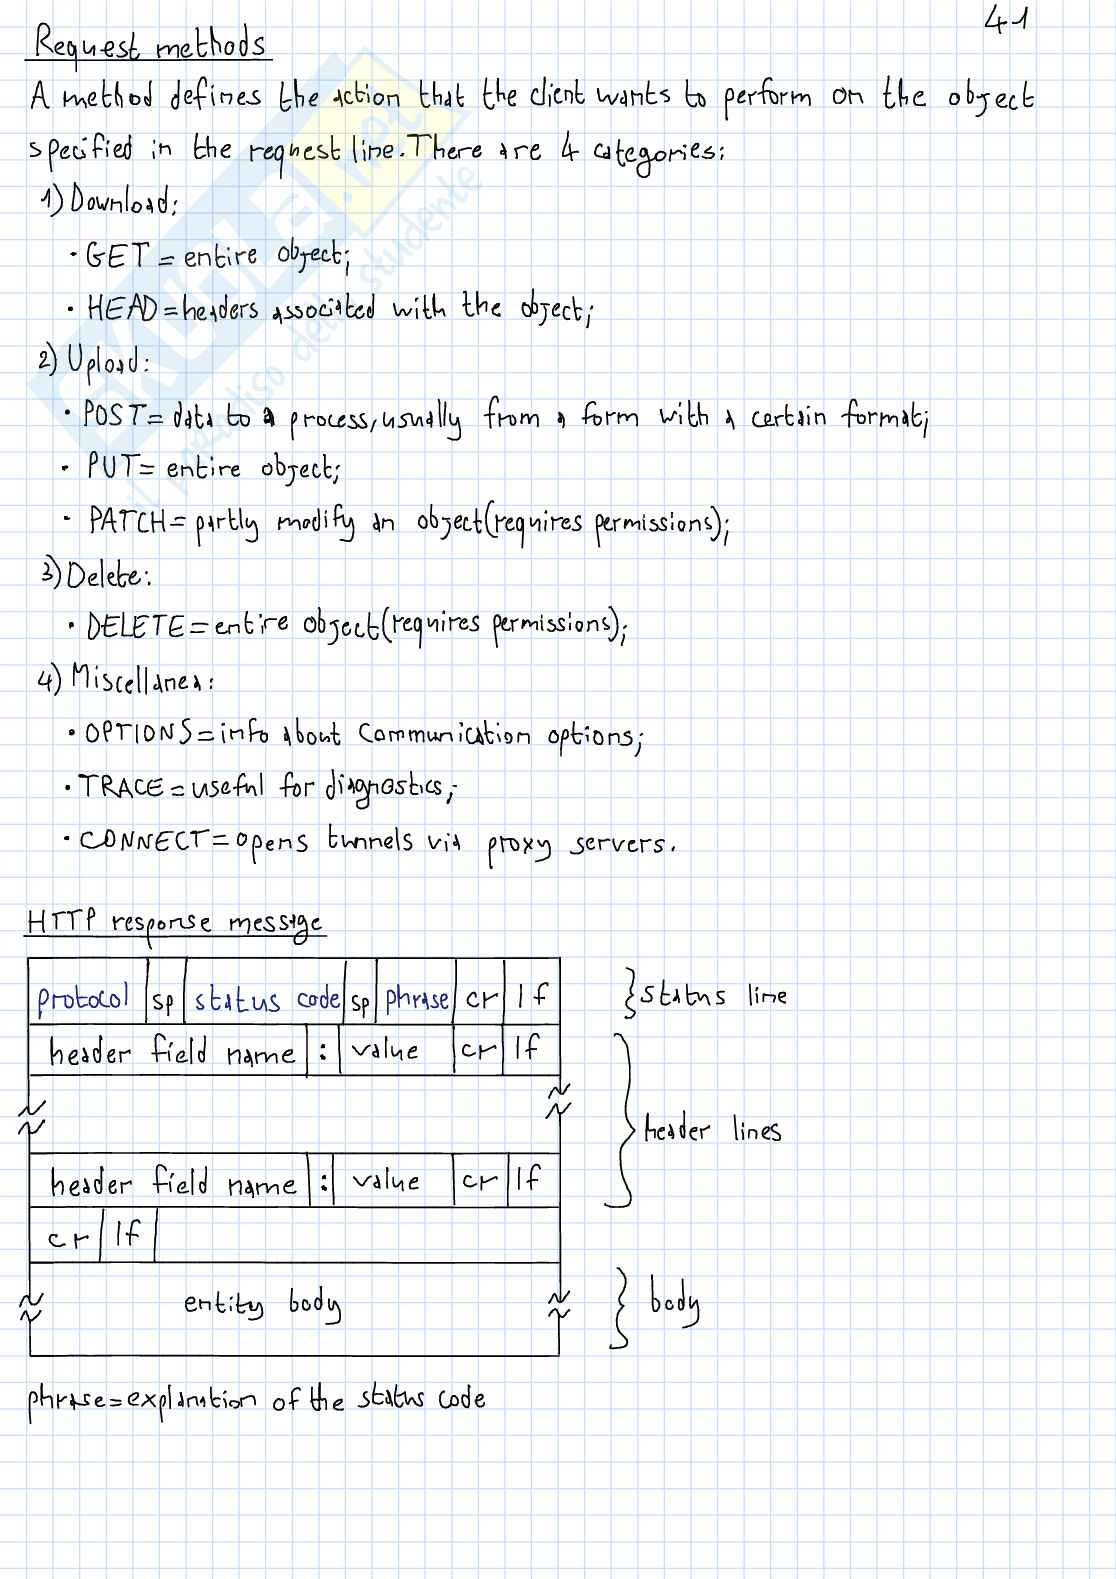 41
Request methods
A method defines the action that the client wants to perform on the object
specified in the request line. There are 4 categories:
1) Download:
• GET = entire object;
• HEAD = headers associated with the object;
2) Upload:
• POST = data to a process, usually from a form with a certain format;
• PUT = entire object;
• PATCH = partly modify an object (requires permissions);
3) Delete:
• DELETE = entire object (requires permissions);
4) Miscellanea:
• OPTIONS = info about communication options;
• TRACE = useful for diagnostics;
• CONNECT = opens tunnels via proxy servers.
HTTP response message
protocol sp status code sp phrase cr lf } status line
header field name : value cr lf
header lines
header field name : value cr lf
cr lf
entity body } body
phrase = explanation of the status code
SKUOLA.net
il paradiso dello studente